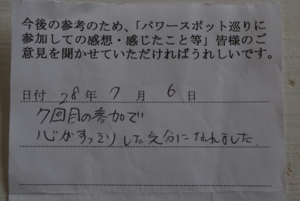 今後の参考のため、「パワースポット巡りに
参加しての感想・感じたこと等」皆様のご
意見を聞かせていただければうれしいです。
日付 28年 7月 6日
7回目の参加で
心がすっきりした気分になれました